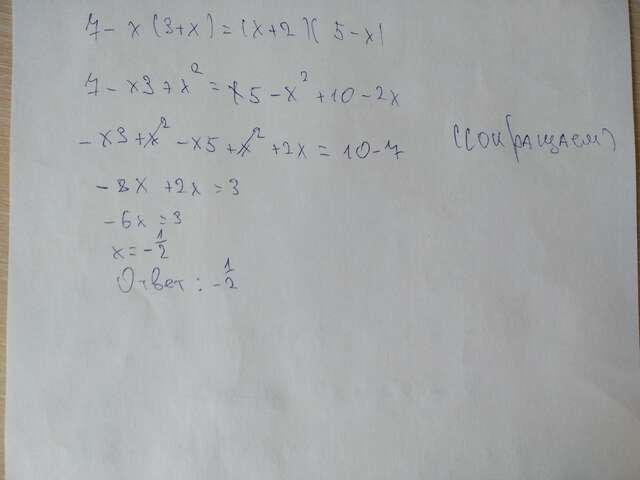 7 - x (3+x) = (x+2)( 5-x)
7 - x3 + x² = x5 - x² + 10 - 2x
- x3 + x² - x5 + x² + 2x = 10 - 7 (сокращаем)
- 8x + 2x = 3
- 6x = 3
x = - 1/2
Ответ: - 1/2